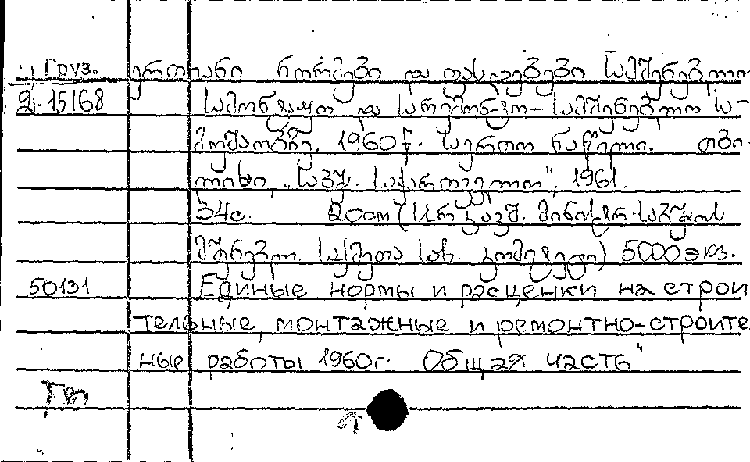 Груз. ერთიანი ნორმები და ფასდებები სამშენებლო
2-15168 სამონტაჟო და სარემონტო-სამშენებლო სა-
მუშაოებზე. 1960 წ. საერთო ნაწილი. თბი-
ლისი, „საბჭ. საქართველო", 1961.
34с. 20см (სსრ კავშ. მინისტრ. საბჭოს
მშენებლ. საქმეთა სახ. კომიტეტი) 5000 экз.
50131 Единые нормы и расценки на строи
тельные, монтажные и ремонтно-строите
ные работы 1960г. Общая часть"